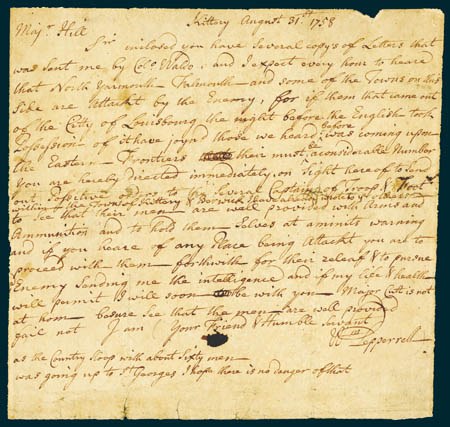 Kittery August 31st 1758
Majr. Hill
Sir inclosed you have Several copys of Letters that
was sent me by Colo. Waldo, and I expect every hour to heare
that North Yarmouth Falmouth and some of the Towns on this
Side are Attackt by the Enemy, for if them that came out
of the Citty of Louisbourg the night before the English took
Possession of it have joynd those we heard before was coming upon
the Eastern Frontiers their must be a considerable Number
You are hereby directed immediately, on Sight hereof to Send
out Positive orders to the Several Captains of Troop & Foot
within the Towns of Kittery & Berwick
to See that their men are well provided with Arms and
Ammunition and to hold them Selves at a minits warning
and if you heare of any Place being Attackt you are to
proceed with them forthwith for their releaf & to pursue
Enemy Sending me the intelligence and if my life & health
will permit I will soon be with you Major Cutt is not
at hom besure See that the men are well provided
fail not I am Your Friend & humble Servant
Wm Pepperrell
as the Country Sloop with about Sixty men
was going up to St Georges I hope there is no danger of that